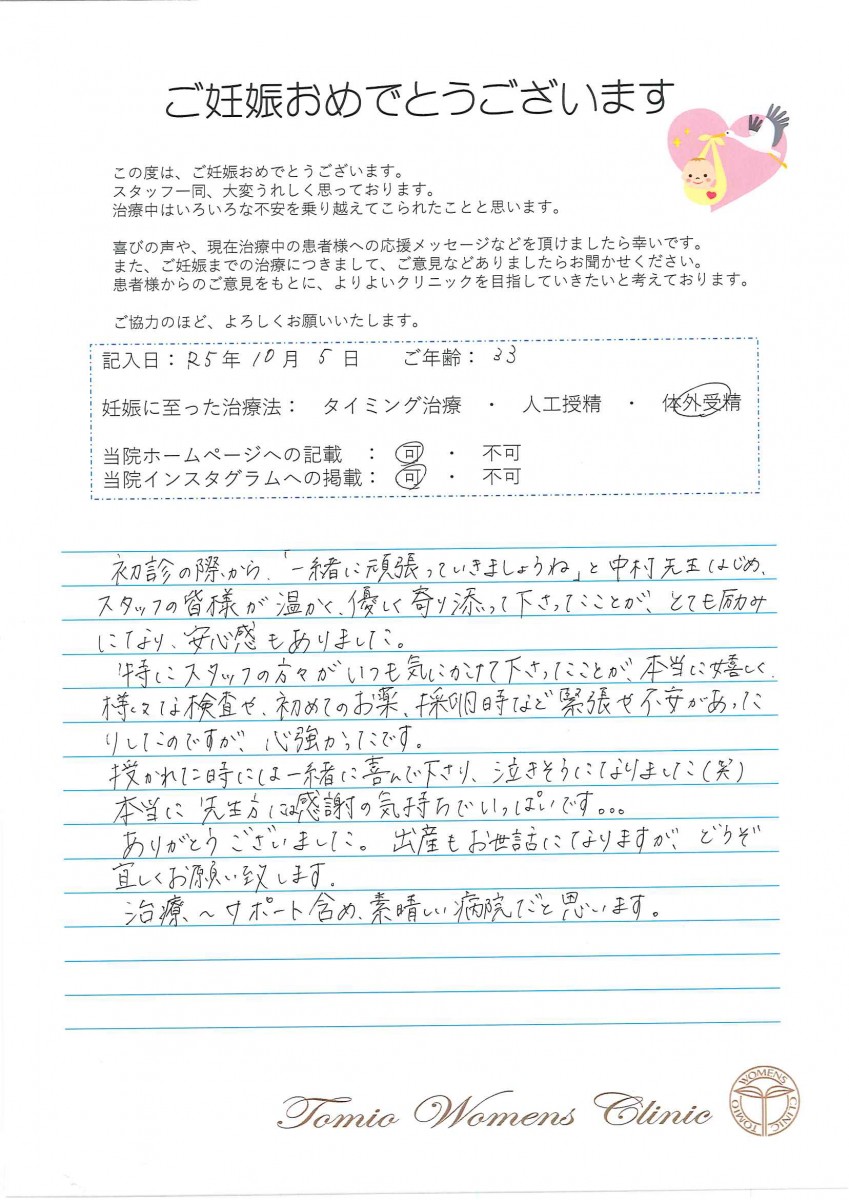 ご妊娠おめでとうございます
この度は、ご妊娠おめでとうございます。
スタッフ一同、大変うれしく思っております。
治療中はいろいろな不安を乗り越えてこられたことと思います。
喜びの声や、現在治療中の患者様への応援メッセージなどを頂けましたら幸いです。
また、ご妊娠までの治療につきまして、ご意見などありましたらお聞かせください。
患者様からのご意見をもとに、よりよいクリニックを目指していきたいと考えております。
ご協力のほど、よろしくお願いいたします。
記入日：R5年 10月 5日　ご年齢：33
妊娠に至った治療法：　タイミング治療　・　人工授精　・　体外受精
当院ホームページへの記載　：　可　・　不可
当院インスタグラムへの掲載：　可　・　不可
初診の際から、「一緒に頑張っていきましょうね」と中村先生はじめ、
スタッフの皆様が温かく、優しく寄り添って下さったことが、とても励み
になり、安心感もありました。
特にスタッフの方々がいつも気にかけて下さったことが、本当に嬉しく、
様々な検査や、初めてのお薬、採卵時など緊張や不安があった
りしたのですが、心強かったです。
授かれた時には一緒に喜んで下さり、泣きそうになりました(笑)
本当に先生方には感謝の気持ちでいっぱいです。。。
ありがとうございました。出産もお世話になりますが、どうぞ
宜しくお願い致します。
治療〜サポート含め、素晴しい病院だと思います。
Tomio Womens Clinic
TOMIO WOMENS CLINIC